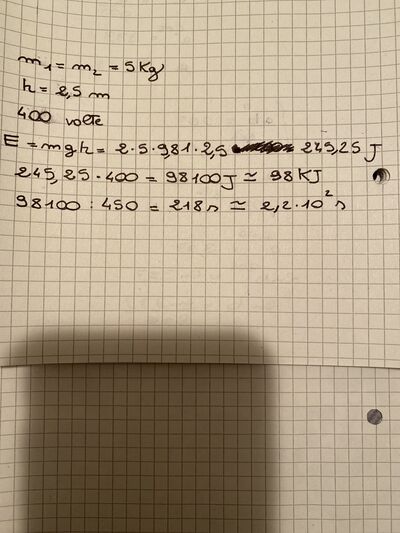 m₁ = m₂ = 5 Kg
h = 2,5 m
400 volte
E = mgh = 2·5·9,81·2,5 245,25 J
245,25 · 400 = 98100 J ≃ 98 KJ
98100 : 450 = 218 s ≃ 2,2·10² s